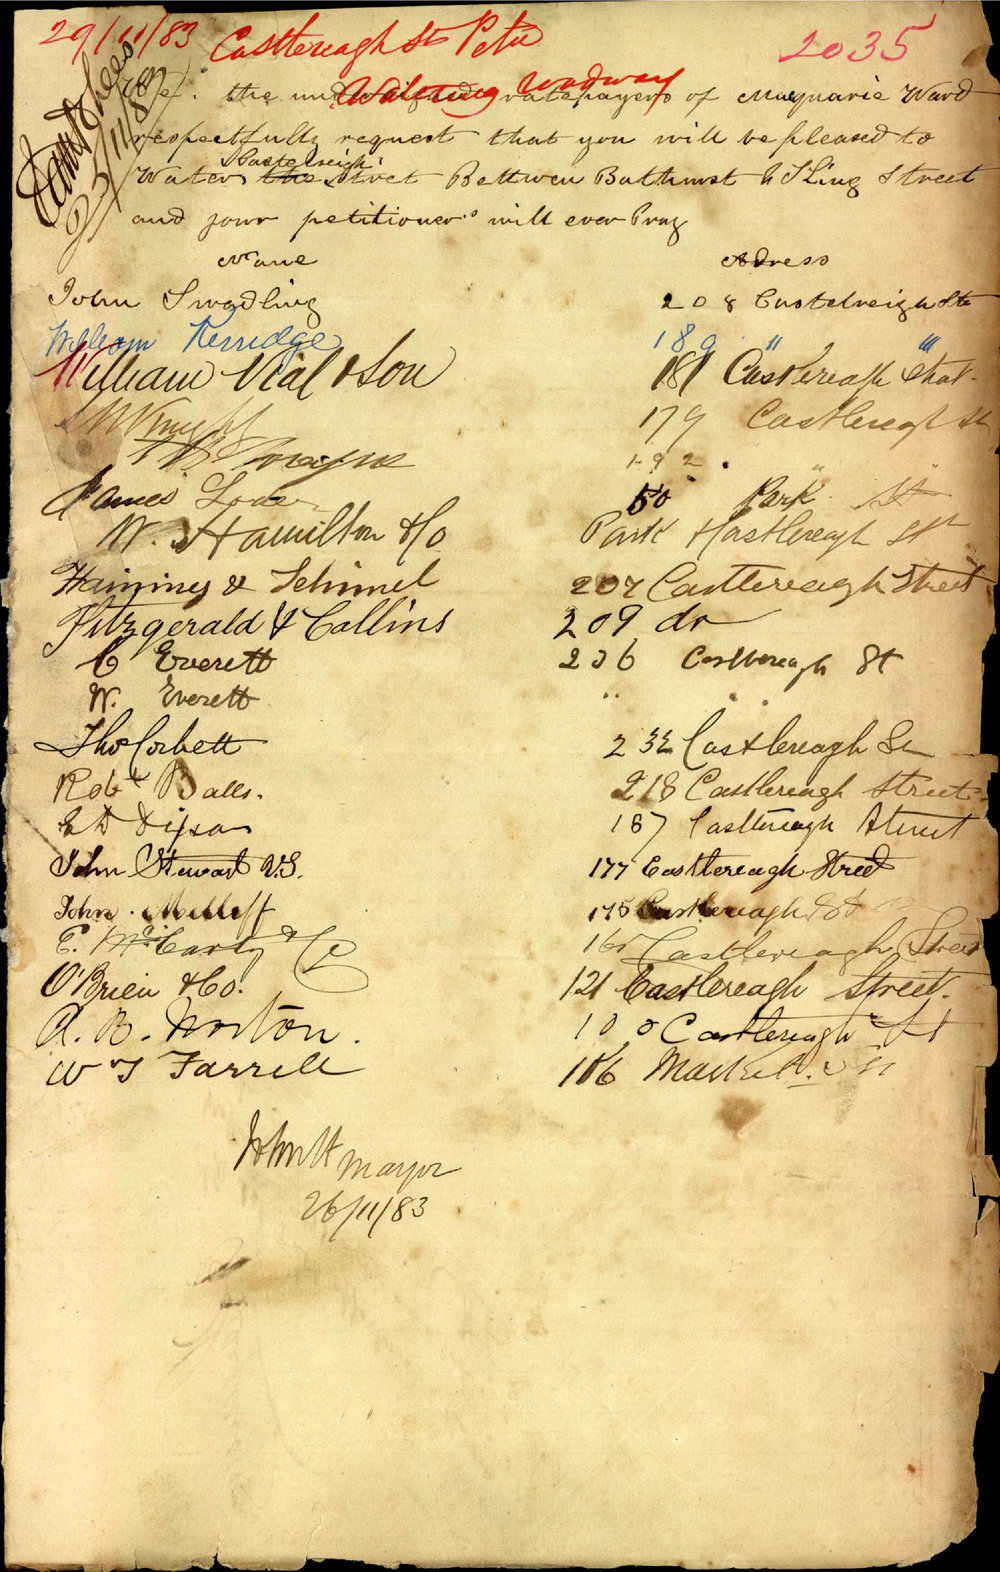 29/11/83 Castlereagh St Petn 2035
Watering Wodway
We the undersigned ratepayers of Macquarie Ward
respectfully request that you will be pleased to
Castelreigh
Water the Stret Bettwen Bathurst & King Street
and your petitioners will ever Pray
Name Adress
John Swadling 208 Castelreigh St
William Kerridge 189 " "
William Vial & Son 181 Castlereagh Street
Wright 179 Castlereagh St
192 " "
James 50 Park St
W. Hamilton & Co Park & Castlereagh St
& Schimel 207 Castlereagh Street
Fitzgerald & Collins 209 do
C Everett 236 Castlereagh St
W. Everett " "
Thos Corbett 232 Castlereagh St
Robt Balls. 218 Castlereagh Street
187 Castlereagh Street
John Stewart V.S. 177 Castlereagh Street
John Melliff 175 Castlereagh St
E. McCarty & Co 165 Castlereagh Street
O'Brien & Co. 121 Castlereagh Street.
A. B. Norton. 100 Castlereagh St
W J Farrell 106 Market St
John H Mayor
26/11/83